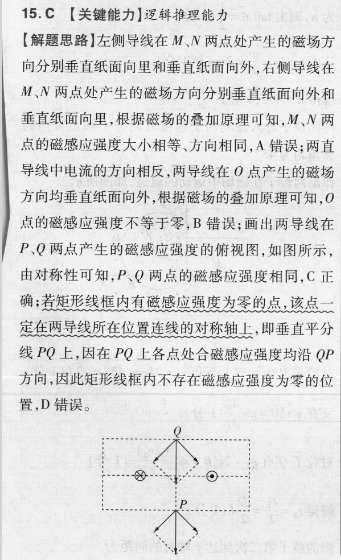 15.C 【关键能力】逻辑推理能力
【解题思路】左侧导线在M、N两点处产生的磁场方
向分别垂直纸面向里和垂直纸面向外,右侧导线在
M、N两点处产生的磁场方向分别垂直纸面向外和
垂直纸面向里,根据磁场的叠加原理可知,M、N两
点的磁感应强度大小相等、方向相同,A错误;两直
导线中电流的方向相反,两导线在O点产生的磁场
方向均垂直纸面向外,根据磁场的叠加原理可知,O
点的磁感应强度不等于零,B错误;画出两导线在
P、Q两点产生的磁感应强度的俯视图,如图所示,
由对称性可知,P、Q两点的磁感应强度相同,C正
确;若矩形线框内有磁感应强度为零的点,该点一
定在两导线所在位置连线的对称轴上,即垂直平分
线PQ上,因在PQ上各点处合磁感应强度均沿QP
方向,因此矩形线框内不存在磁感应强度为零的位
置,D错误。
Q
P